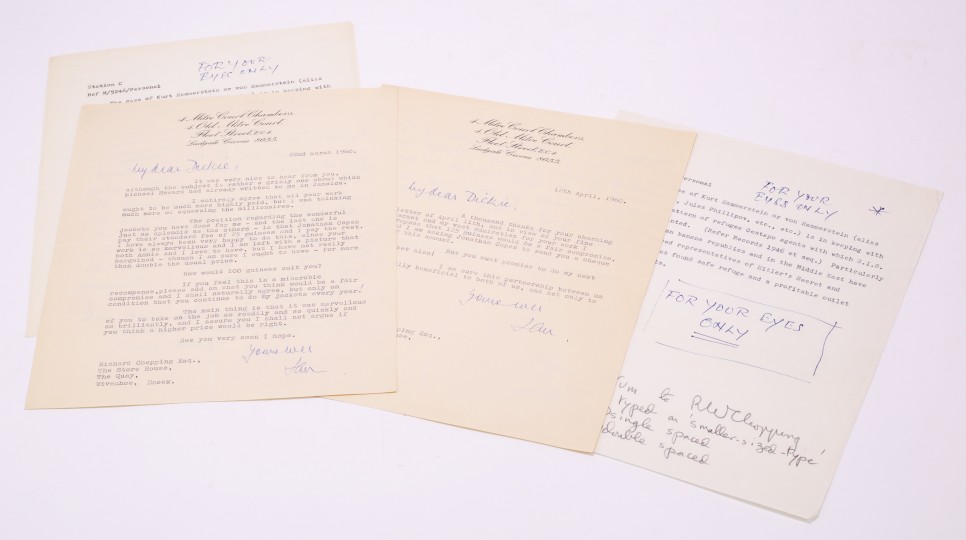 FOR YOUR
EYES ONLY
Station C
Ref W/5246/Personal
The case of Kurt Hammerstein or von Hammerstein (alias
is in keeping with
4 Mitre Court Chambers
4 Old Mitre Court
Fleet Street, EC4
Ludgate Circus 8655
22nd March 1960.
My dear Dickie,
It was very nice to hear from you,
although the subject is rather a grisly one about which
Michael Howard had already written to me in Jamaica.
I entirely agree that all your work
ought to be much more highly paid, but I was thinking
much more of squeezing the millionaires.
The position regarding the wonderful
jackets you have done for me - and the last one is
just as splendid as the others - is that Jonathan Capes
pay their standard fee of 25 guineas and I pay the rest.
I have always been very happy to do this, since your
work is so marvellous and I am left with a picture that
both Annie and I love to have, but I have not really
bargained - though I am sure I ought to have - for more
than double the usual price.
How would 100 guineas suit you?
If you feel this is a miserable
recompense, please add on what you think would be a fair
compromise and I shall naturally agree, but only on
condition that you continue to do my jackets every year.
The main thing is that it was marvellous
of you to take on the job so readily and so quickly and
so brilliantly, and I assure you I shall not argue if
you think a higher price would be right.
See you very soon I hope.
Yours ever
Ian
Richard Chopping Esq.,
The Store House,
The Quay,
Wivenhoe, Essex.
4 Mitre Court Chambers
4 Old Mitre Court
Fleet Street, EC4
Ludgate Circus 8655
April, 1960.
My dear Dickie,
letter of April
thousand thanks for your charming
for your fine
would be a fair compromise,
Jonathan Capes to send you a cheque
this amount.
But you must promise to do my next
I am sure this partnership between us
beneficial to both of us, and not only to
Yours ever
Ian
ping Esq.,
personal
FOR YOUR
EYES ONLY
*
se of Kurt Hammerstein or von Hammerstein (alias
, Jules Phillipov, etc., etc.) is in keeping with
attern of refugee Gestapo agents with which S.I.S.
nted. (Refer Records 1946 et seq.) Particularly
an banana republics and in the Middle East have
ed representatives of Hitler's Secret and
s found safe refuge and a profitable outlet
FOR YOUR EYES
ONLY
Turn to RW Chopping
typed on 'smaller-sized-type'
single spaced
double spaced